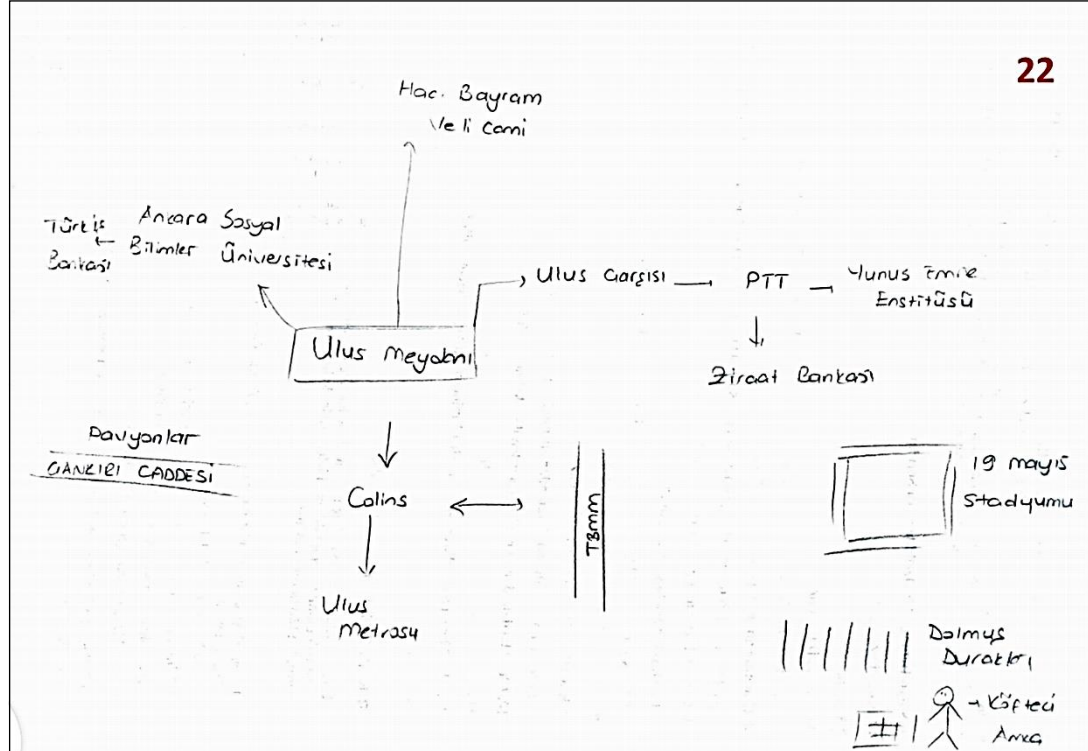 22
Hac. Bayram
Veli Cami
Ankara Sosyal
Bilimler Üniversitesi
Türk iş
Bankası
Ulus Çarşısı
PTT
Yunus Emre
Enstitüsü
Ziraat Bankası
Ulus Meydanı
Pavyonlar
ÇANKIRI CADDESİ
Colins
TBMM
19 mayıs
Stadyumu
Ulus
Metrosu
Dolmuş
Durakları
Köfteci
Amca